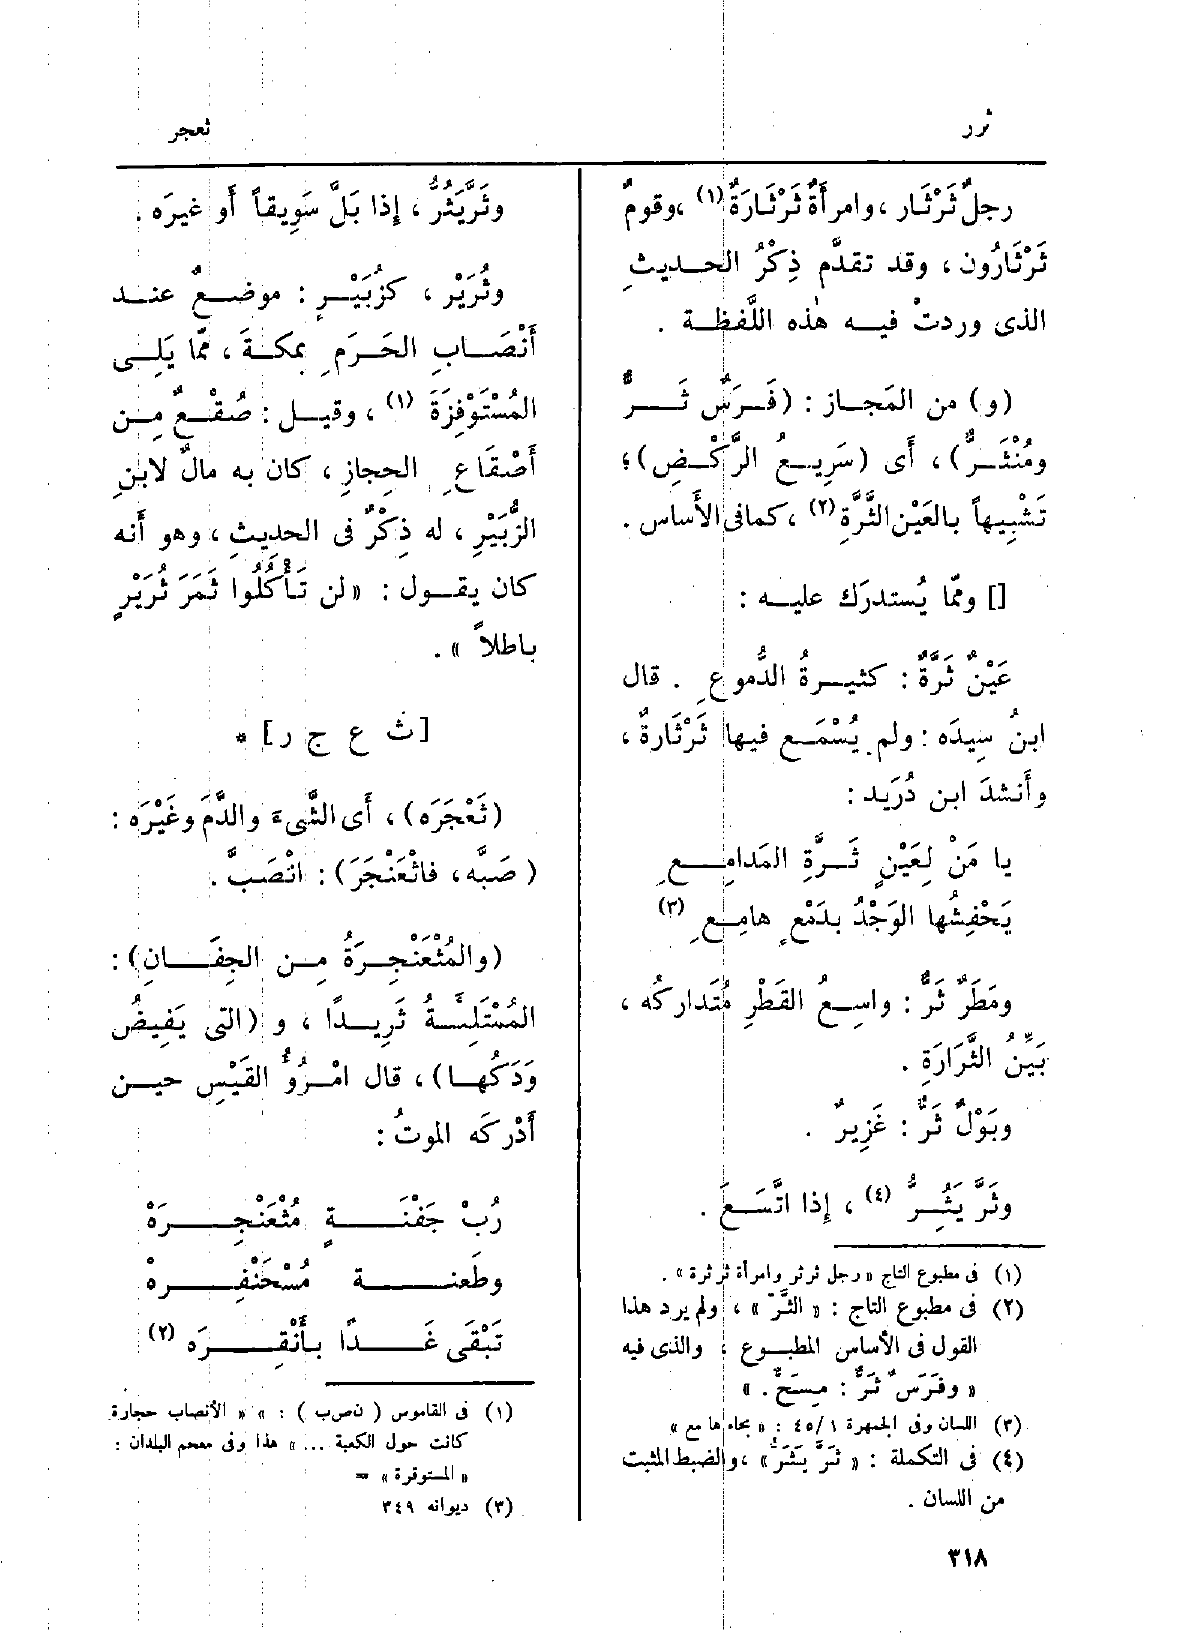 ثرر
ثعجر
رجلٌ ثَرْثَار ، وامرأَةٌ ثَرْثَارَةٌ (١) ، وقومٌ
ثَرْثَارُون ، وقد تقدَّم ذِكْرُ الحديثِ
الذى وردتْ فيه هٰذه اللَّفظة .
(و) من المَجاز : (فَرَسٌ ثَرٌّ
ومُنْثَرٌّ) ، أَى (سَرِيعُ الرَّكْضِ) ؛
تَشْبِيهاً بالعَيْن الثَّرَّةِ (٢) ، كما فى الأَساس .
[] وممّا يُستدرَك عليه :
عَيْنٌ ثَرَّةٌ : كثيرةُ الدُّموعِ . قال
ابنُ سِيدَه : ولم يُسْمَع فيها ثَرْثَارةٌ ،
وأَنشدَ ابن دُرَيد :
يا مَنْ لِعَيْنٍ ثَرَّةِ المَدامِعِ
يَحْفِشُها الوَجْدُ بدَمْعٍ هامِعِ (٣)
ومَطَرٌ ثَرٌّ : واسِعُ القَطْرِ مُتَداركُه ،
بَيِّنُ الثَّرَارَةِ .
وبَوْلٌ ثَرٌّ : غَزِيرٌ .
وثَرَّ يَثُِرُّ (٤) ، إِذا اتَّسَعَ .
(١) فى مطبوع التاج « رجل ثرثر وامرأة ثرثرة » .
(٢) فى مطبوع التاج : « الثَّرّ » ، ولم يرد هذا
القول فى الأساس المطبوع ، والذى فيه
« وفَرَسٌ ثَرٌّ : مِسَحٌّ . »
(٣) اللسان وفى الجمهرة ٤٥/١ : « بجاء ها مع »
(٤) فى التكملة : « ثَرَّ يَثَرُّ » ، والضبط المثبت
من اللسان .
٣١٨
وثَرَّيَثُرُّ ، إِذا بَلَّ سَوِيقاً أَو غيرَه .
وثُرَيْر ، كزُبَيْرٍ : موضعٌ عند
أَنْصَابِ الحَرَمِ بمكةَ ، ممّا يَلِى
المُسْتَوْفِزَةَ (١) ، وقيل : صُقْعٌ مِن
أَصْقَاعِ الحِجازِ ، كان به مالٌ لابنِ
الزُّبَيْرِ ، له ذِكْرٌ فى الحديثِ ، وهو أَنه
كان يقول : « لن تَأْكُلُوا ثَمَرَ ثُرَيْرٍ
باطلاً » .
[ث ع ج ر] *
(ثَعْجَرَه) ، أَى الشَّىءَ والدَّمَ وغَيْرَه :
(صَبَّه ، فاثْعَنْجَرَ) : انْصَبَّ .
(والمُثْعَنْجِرةُ مِن الجِفَانِ) :
المُمْتَلِئَةُ ثَرِيدًا ، و (التى يَفِيضُ
وَدَكُها) ، قال امْرُؤُ القَيْسِ حين
أَدْرَكه الموتُ :
رُبْ جَفْنَةٍ مُثْعَنْجِرَهْ
وطَعنة مُسْحَنْفِرهْ
تَبْقَى غَدًا بأَنْقِرَه (٢)
(١) فى القاموس ( نصب ) : « الأنصاب حجارة
كانت حول الكعبة ... » هذا وفى معجم البلدان :
« المستوفرة » =
(٣) ديوانه ٣٤٩